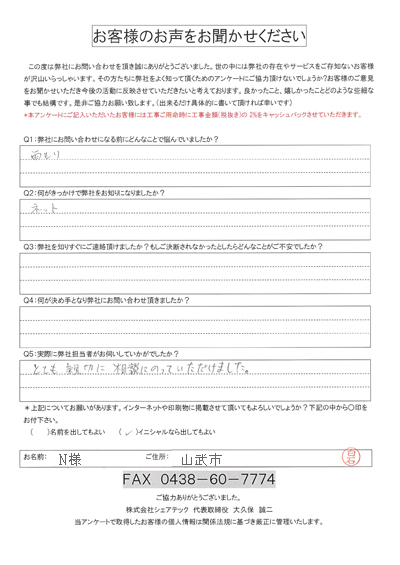 お客様のお声をお聞かせください
この度は弊社にお問い合わせを頂き誠にありがとうございました。世の中には弊社の存在やサービスをご存知ないお客様
が沢山いらっしゃいます。その方たちに弊社をよく知って頂くためのアンケートにご協力頂けないでしょうか?お客様のご意見
をお聞かせいただき今後の活動に反映させていただきたいと考えております。良かったこと、嬉しかったことどのような些細な
事でも結構です。是非ご協力お願い致します。(出来るだけ具体的に書いて頂ければ幸いです)
*本アンケートにご記入いただいたお客様には工事ご用命時に工事金額(税抜き)の 2%をキャッシュバックさせていただきます。
Q1:弊社にお問い合わせになる前にどんなことで悩んでいましたか?
雨もり
Q2:何がきっかけで弊社をお知りになりましたか?
ネット
Q3:弊社を知りすぐにご連絡頂けましたか?もしご決断されなかったとしたらどんなことがご不安でしたか?
Q4:何が決め手となり弊社にお問い合わせ頂きましたか?
Q5:実際に弊社担当者がお伺いしていかがでしたか?
とても 親切に 相談にのっていただけました。
*上記についてお願いがあります。インターネットや印刷物に掲載させて頂いてもよろしいでしょうか?下記の中から〇印を
お付下さい。
( )名前を出してもよい (✓)イニシャルなら出してもよい
お名前: N様 ご住所: 山武市
FAX 0438-60-7774
ご協力ありがとうございました。
株式会社シェアテック 代表取締役 大久保 誠二
当アンケートで取得したお客様の個人情報は関係法規に基づき厳正に管理いたします。